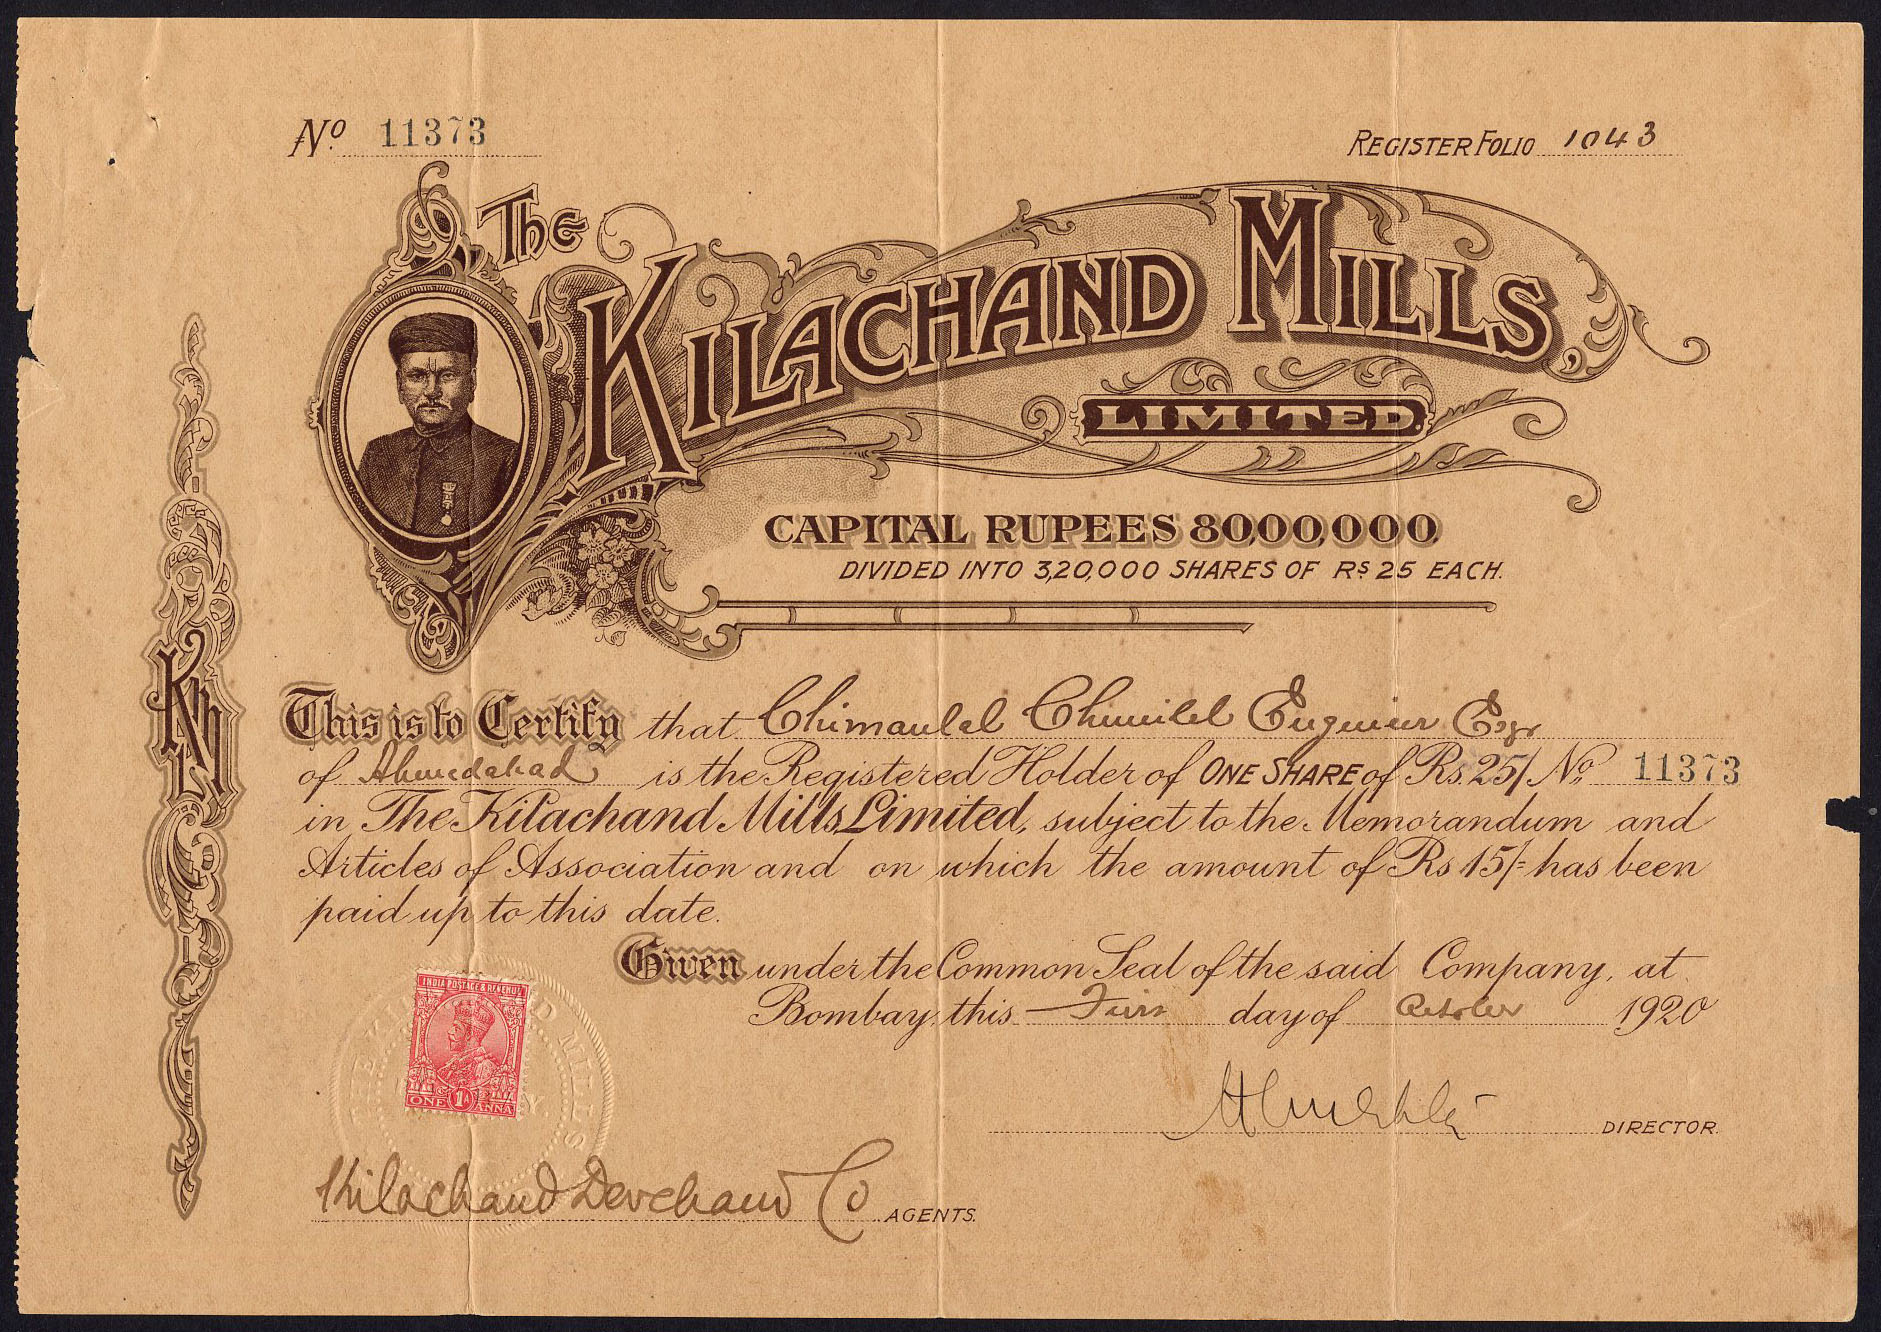 No. 11373
REGISTER FOLIO 1043
The
KILACHAND MILLS,
LIMITED.
CAPITAL RUPEES 80,00,000.
DIVIDED INTO 3,20,000 SHARES OF RS 25 EACH.
KM
LD
This is to Certify that Chimanlal Chunilal Engineer Esqr
of Ahmedabad is the Registered Holder of ONE SHARE of Rs. 25/ No. 11373
in The Kilachand Mills Limited, subject to the Memorandum and
Articles of Association and on which the amount of Rs 15/- has been
paid up to this date.
Given under the Common Seal of the said Company, at
Bombay, this First day of October 1920
INDIA POSTAGE & REVENUE
ONE 1A ANNA
THE KILACHAND MILLS
DIRECTOR.
Kilachand Devchand Co AGENTS.